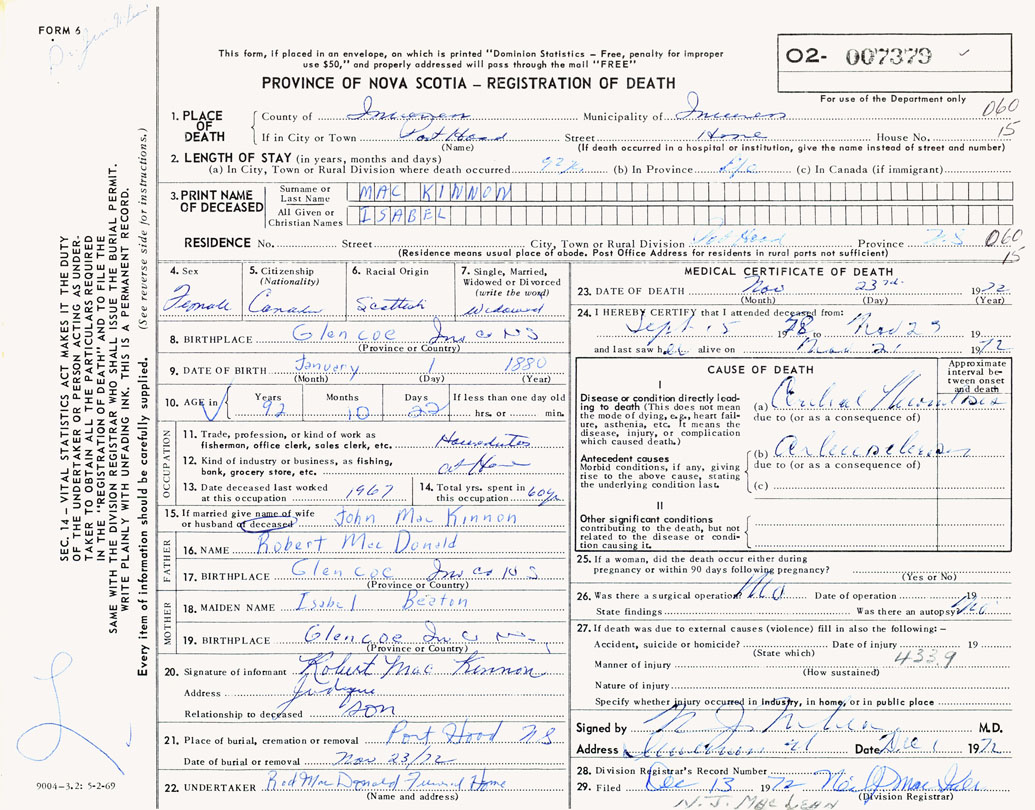 FORM 6
This form, if placed in an envelope, on which is printed "Dominion Statistics – Free, penalty for improper
use $50," and properly addressed will pass through the mail "FREE"
PROVINCE OF NOVA SCOTIA – REGISTRATION OF DEATH
O2- 007379
For use of the Department only
060
15
1. PLACE OF DEATH
County of Inverness Municipality of Inverness
If in City or Town Port Hood Street Home House No.
(Name) (If death occurred in a hospital or institution, give the name instead of street and number)
2. LENGTH OF STAY (in years, months and days)
(a) In City, Town or Rural Division where death occurred 92 (b) In Province (c) In Canada (if immigrant)
3. PRINT NAME OF DECEASED
Surname or Last Name MAC KINNON
All Given or Christian Names ISABEL
RESIDENCE No. Street City, Town or Rural Division Port Hood Province N.S 060
15
(Residence means usual place of abode. Post Office Address for residents in rural parts not sufficient)
4. Sex
Female
5. Citizenship
(Nationality)
6. Racial Origin
Scottish
7. Single, Married,
Widowed or Divorced
(write the word)
Widowed
8. BIRTHPLACE Glencoe Inv Co NS
(Province or Country)
9. DATE OF BIRTH January 1 1880
(Month) (Day) (Year)
10. AGE in Years Months Days If less than one day old
92 10 22 hrs. or min.
OCCUPATION
11. Trade, profession, or kind of work as
fisherman, office clerk, sales clerk, etc.
12. Kind of industry or business, as fishing,
bank, grocery store, etc. at Home
13. Date deceased last worked
at this occupation 1967
14. Total yrs. spent in
this occupation 60
15. If married give name of wife
or husband of deceased John Mac Kinnon
FATHER
16. NAME Robert Mac Donald
17. BIRTHPLACE Glencoe Inv Co NS
(Province or Country)
MOTHER
18. MAIDEN NAME Isabel Beaton
19. BIRTHPLACE Glencoe Inv
(Province or Country)
20. Signature of informant Robert Mac Kinnon
Address Judique
Relationship to deceased son
21. Place of burial, cremation or removal Port Hood NS
Date of burial or removal Nov 23/72
22. UNDERTAKER Rod MacDonald Funeral Home
(Name and address)
MEDICAL CERTIFICATE OF DEATH
23. DATE OF DEATH Nov 23rd 1972
(Month) (Day) (Year)
24. I HEREBY CERTIFY that I attended deceased from:
Sept 15 to Nov 23 19
and last saw her alive on Nov 21 1972
CAUSE OF DEATH
Approximate
interval be-
tween onset
and death
I
Disease or condition directly lead-
ing to death (This does not mean
the mode of dying, e.g., heart fail-
ure, asthenia, etc. It means the
disease, injury, or complication
which caused death.)
(a) Cerebral Thrombosis
due to (or as a consequence of)
Antecedent causes
Morbid conditions, if any, giving
rise to the above cause, stating
the underlying condition last.
(b)
due to (or as a consequence of)
(c)
II
Other significant conditions
contributing to the death, but not
related to the disease or condi-
tion causing it.
25. If a woman, did the death occur either during
pregnancy or within 90 days following pregnancy?
(Yes or No)
26. Was there a surgical operation No Date of operation 19
State findings Was there an autopsy No
27. If death was due to external causes (violence) fill in also the following: –
Accident, suicide or homicide? Date of injury 19
(State which)
433.9
Manner of injury
(How sustained)
Nature of injury
Specify whether injury occurred in industry, in home, or in public place
Signed by M.D.
Address Date Dec 1 1972
28. Division Registrar's Record Number
29. Filed Dec 13 1972
(Division Registrar)
N. J. MACLEAN
SEC. 14 – VITAL STATISTICS ACT MAKES IT THE DUTY
OF THE UNDERTAKER OR PERSON ACTING AS UNDER-
TAKER TO OBTAIN ALL THE PARTICULARS REQUIRED
IN THE "REGISTRATION OF DEATH" AND TO FILE THE
SAME WITH THE DIVISION REGISTRAR WHO SHALL ISSUE THE BURIAL PERMIT.
WRITE PLAINLY WITH UNFADING INK. THIS IS A PERMANENT RECORD.
Every item of information should be carefully supplied. (See reverse side for instructions.)
9004–3.2: 5-2-69